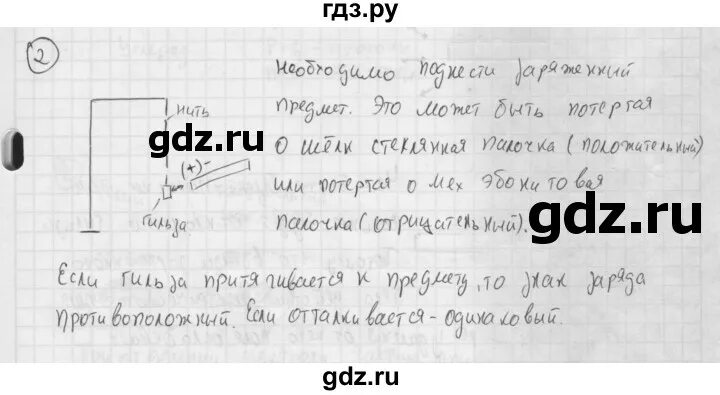 гдз.ру
2
Необходимо поднести заряженный
предмет. Это может быть потертая
о шёлк стеклянная палочка (положительный)
или потертая о мех эбонитовая
палочка (отрицательный).
нить
(+)-
гильза
Если гильза притягивается к предмету, то знак заряда
противоположный. Если отталкивается - одинаковый.
gdz.ru
gdz.ru
gdz.ru
gdz.ru
gdz.ru
gdz.ru